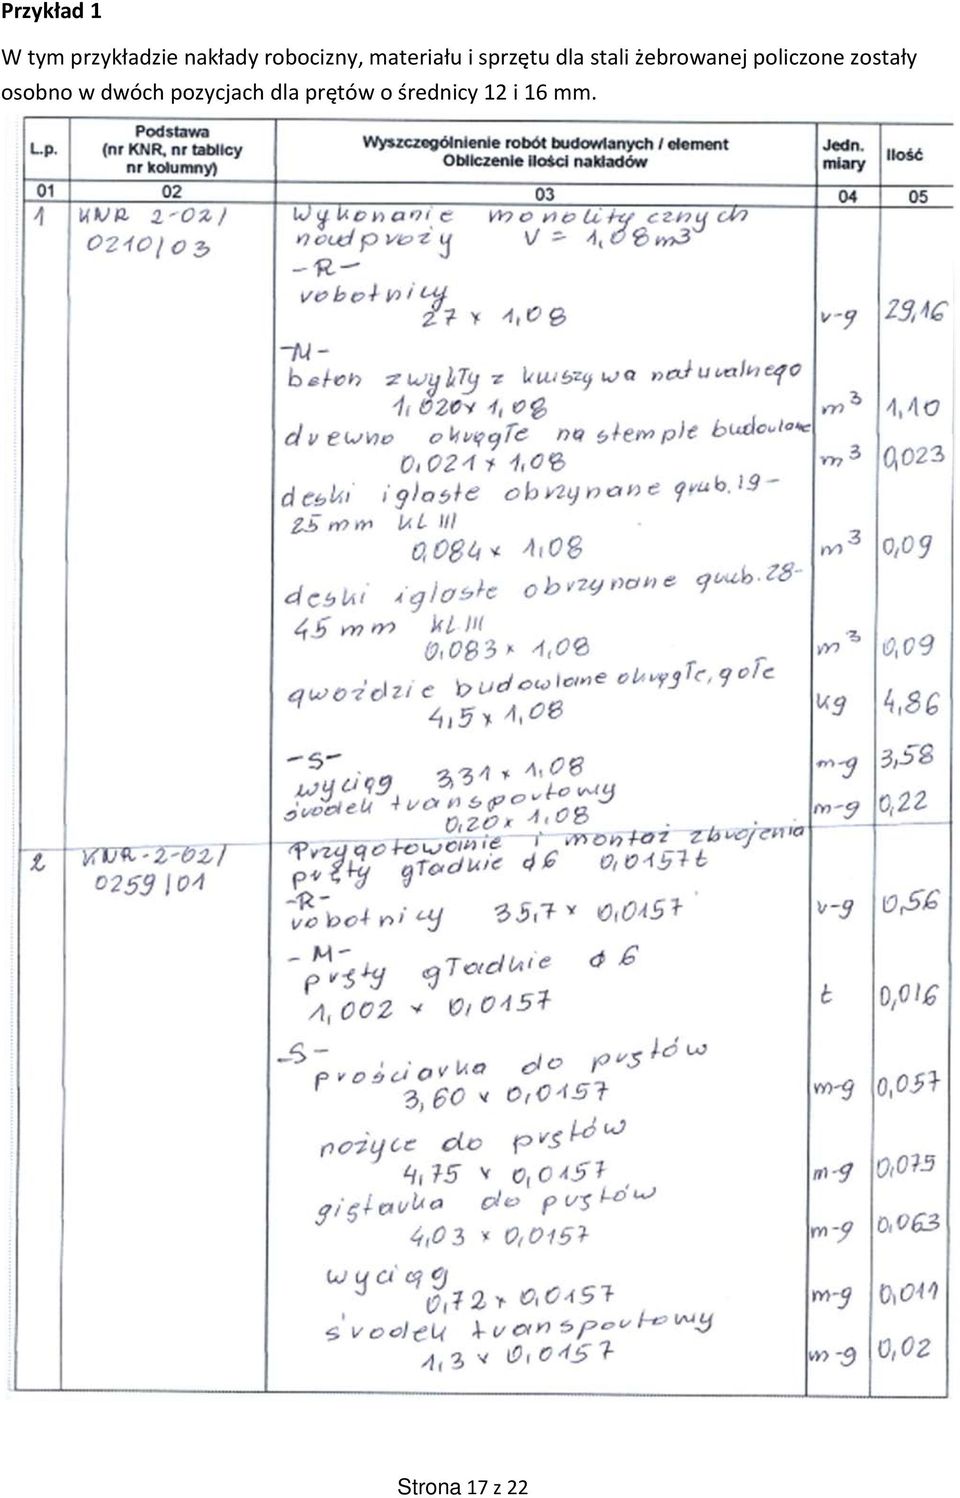 Przykład 1
W tym przykładzie nakłady robocizny, materiału i sprzętu dla stali żebrowanej policzone zostały
osobno w dwóch pozycjach dla prętów o średnicy 12 i 16 mm.
L.p. Podstawa (nr KNR, nr tablicy nr kolumny) Wyszczególnienie robót budowlanych / element Obliczenie ilości nakładów Jedn. miary Ilość
01 02 03 04 05
1 KNR 2-02/ Wykonanie monolitycznych
0210/03 nadproży V = 1,08m3
-R-
robotnicy
27 x 1,08 r-g 29,16
-M-
beton zwykły z kruszywa naturalnego
1,020x 1,08 m3 1,10
drewno okrągłe na stemple budowlane
0,021 x 1,08 m3 0,023
deski iglaste obrzynane grub. 19-
25 mm kl III
0,084 x 1,08 m3 0,09
deski iglaste obrzynane grub. 28-
45 mm kl III
0,083 x 1,08 m3 0,09
gwoździe budowlane okrągłe, gołe
4,5 x 1,08 kg 4,86
-S-
wyciąg 3,31 x 1,08 m-g 3,58
środek transportowy
0,20 x 1,08 m-g 0,22
2 KNR-2-02/ Przygotowanie i montaż zbrojenia
0259/01 pręty gładkie φ6 0,0157t
-R-
robotnicy 35,7 x 0,0157 r-g 0,56
-M-
pręty gładkie φ 6
1,002 x 0,0157 t 0,016
-S-
prościarka do prętów
3,60 x 0,0157 m-g 0,057
nożyce do prętów
4,75 x 0,0157 m-g 0,075
giętarka do prętów
4,03 x 0,0157 m-g 0,063
wyciąg
0,72 x 0,0157 m-g 0,011
środek transportowy
1,3 x 0,0157 m-g 0,02
Strona 17 z 22